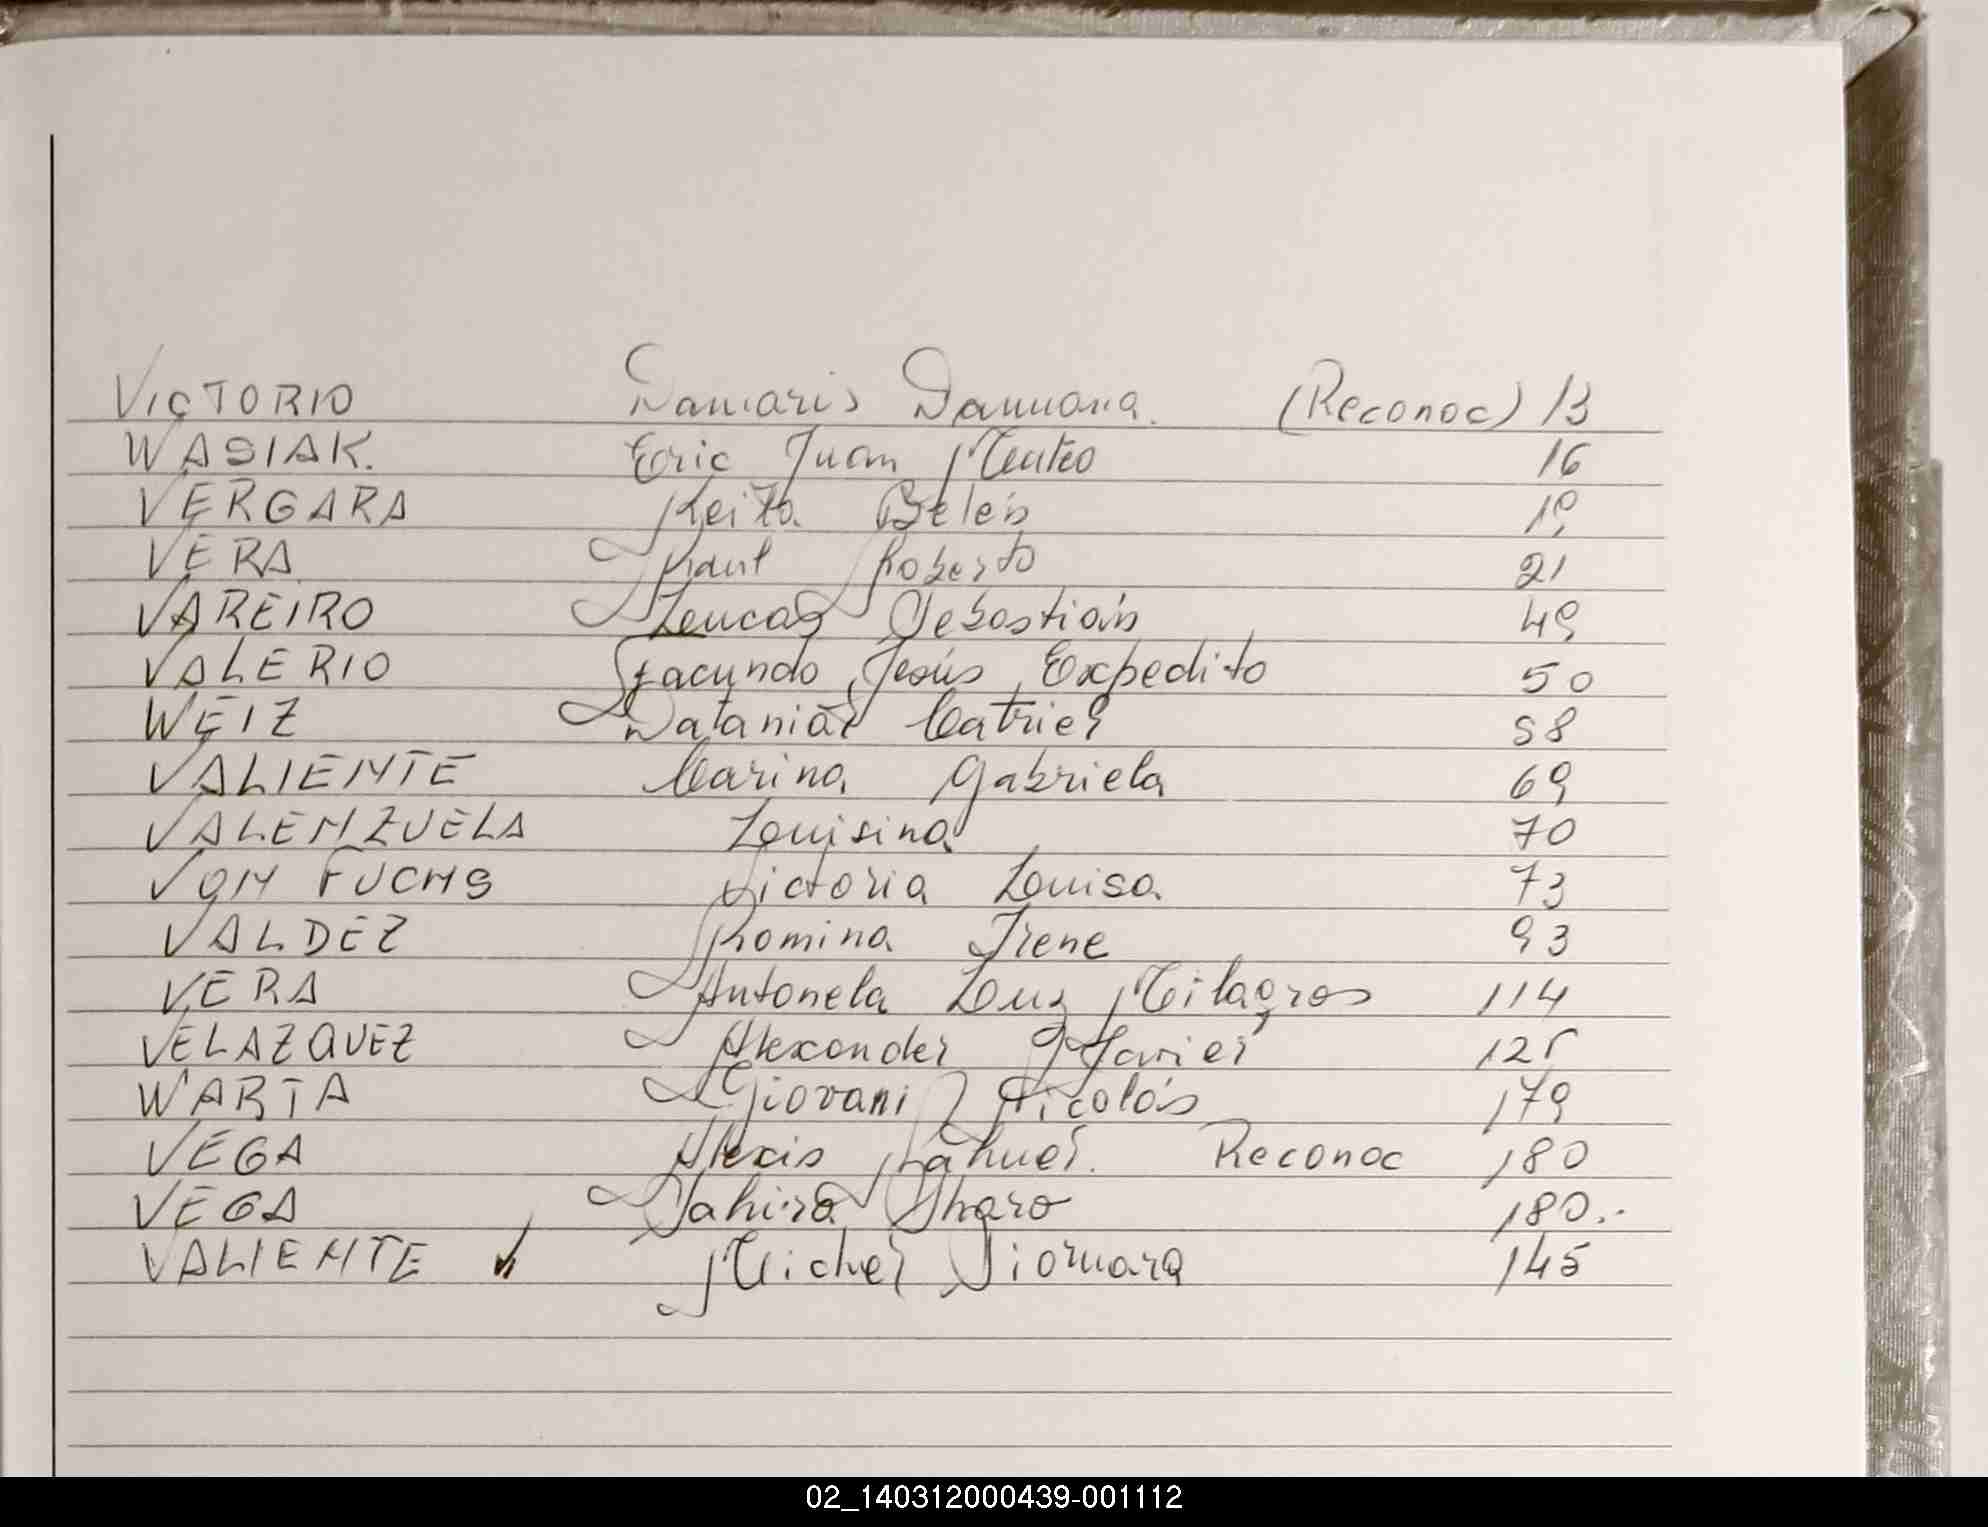 VICTORIO Damaris Dammara. (Reconoc) 13
WASIAK. Eric Juan Mateo 16
VERGARA Keila Belén 19
VERA Raul Roberto 21
VAREIRO Lucas Sebastián 49
VALERIO Facundo Jesús Expedito 50
WEIZ Nataniel Catriel 58
VALIENTE Carina Gabriela 69
VALENZUELA Luisina 70
VON FUCHS Victoria Luisa 73
VALDEZ Romina Irene 93
VERA Antonela Luz Milagros 114
VELAZQUEZ Alexander Javier 125
WARTA Giovani Nicolás 179
VEGA Alexis Nahuel. Reconoc 180
VEGA 180..
VALIENTE Michel 145
02_140312000439-001112